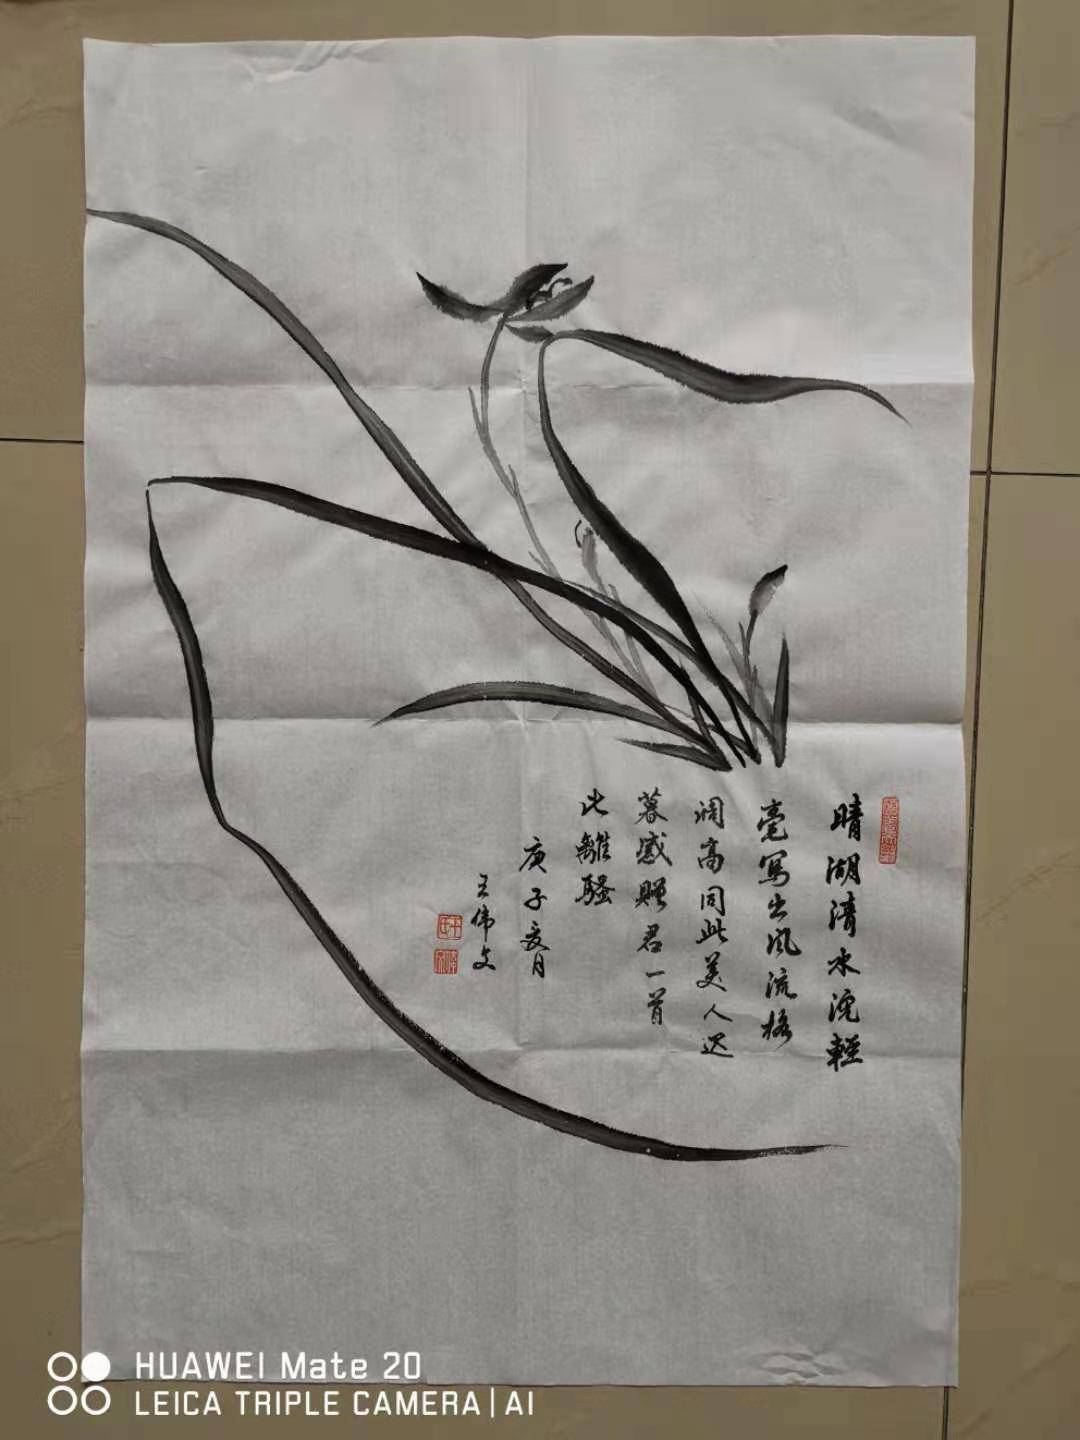 晴湖清水浣輕
毫寫出风流格
调高同此美人迟
暮感赠君一首
比離騷
庚子夏月
王伟文
HUAWEI Mate 20
LEICA TRIPLE CAMERA | AI